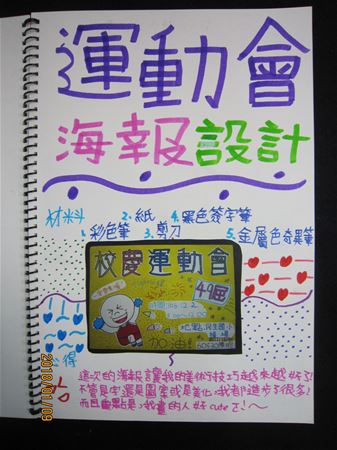 運動會
海報設計
材料
2.紙 4.黑色簽字筆
1.彩色筆 3.剪刀 5.金屬色奇異筆
校慶運動會
49屆
加油!
心得
這次的海報讓我的美術技巧越來越好了!
不管是字還是圖案或是美化,我都進步了很多!
而且重點是:我畫的人好cute ㄛ!~
2010/01/09